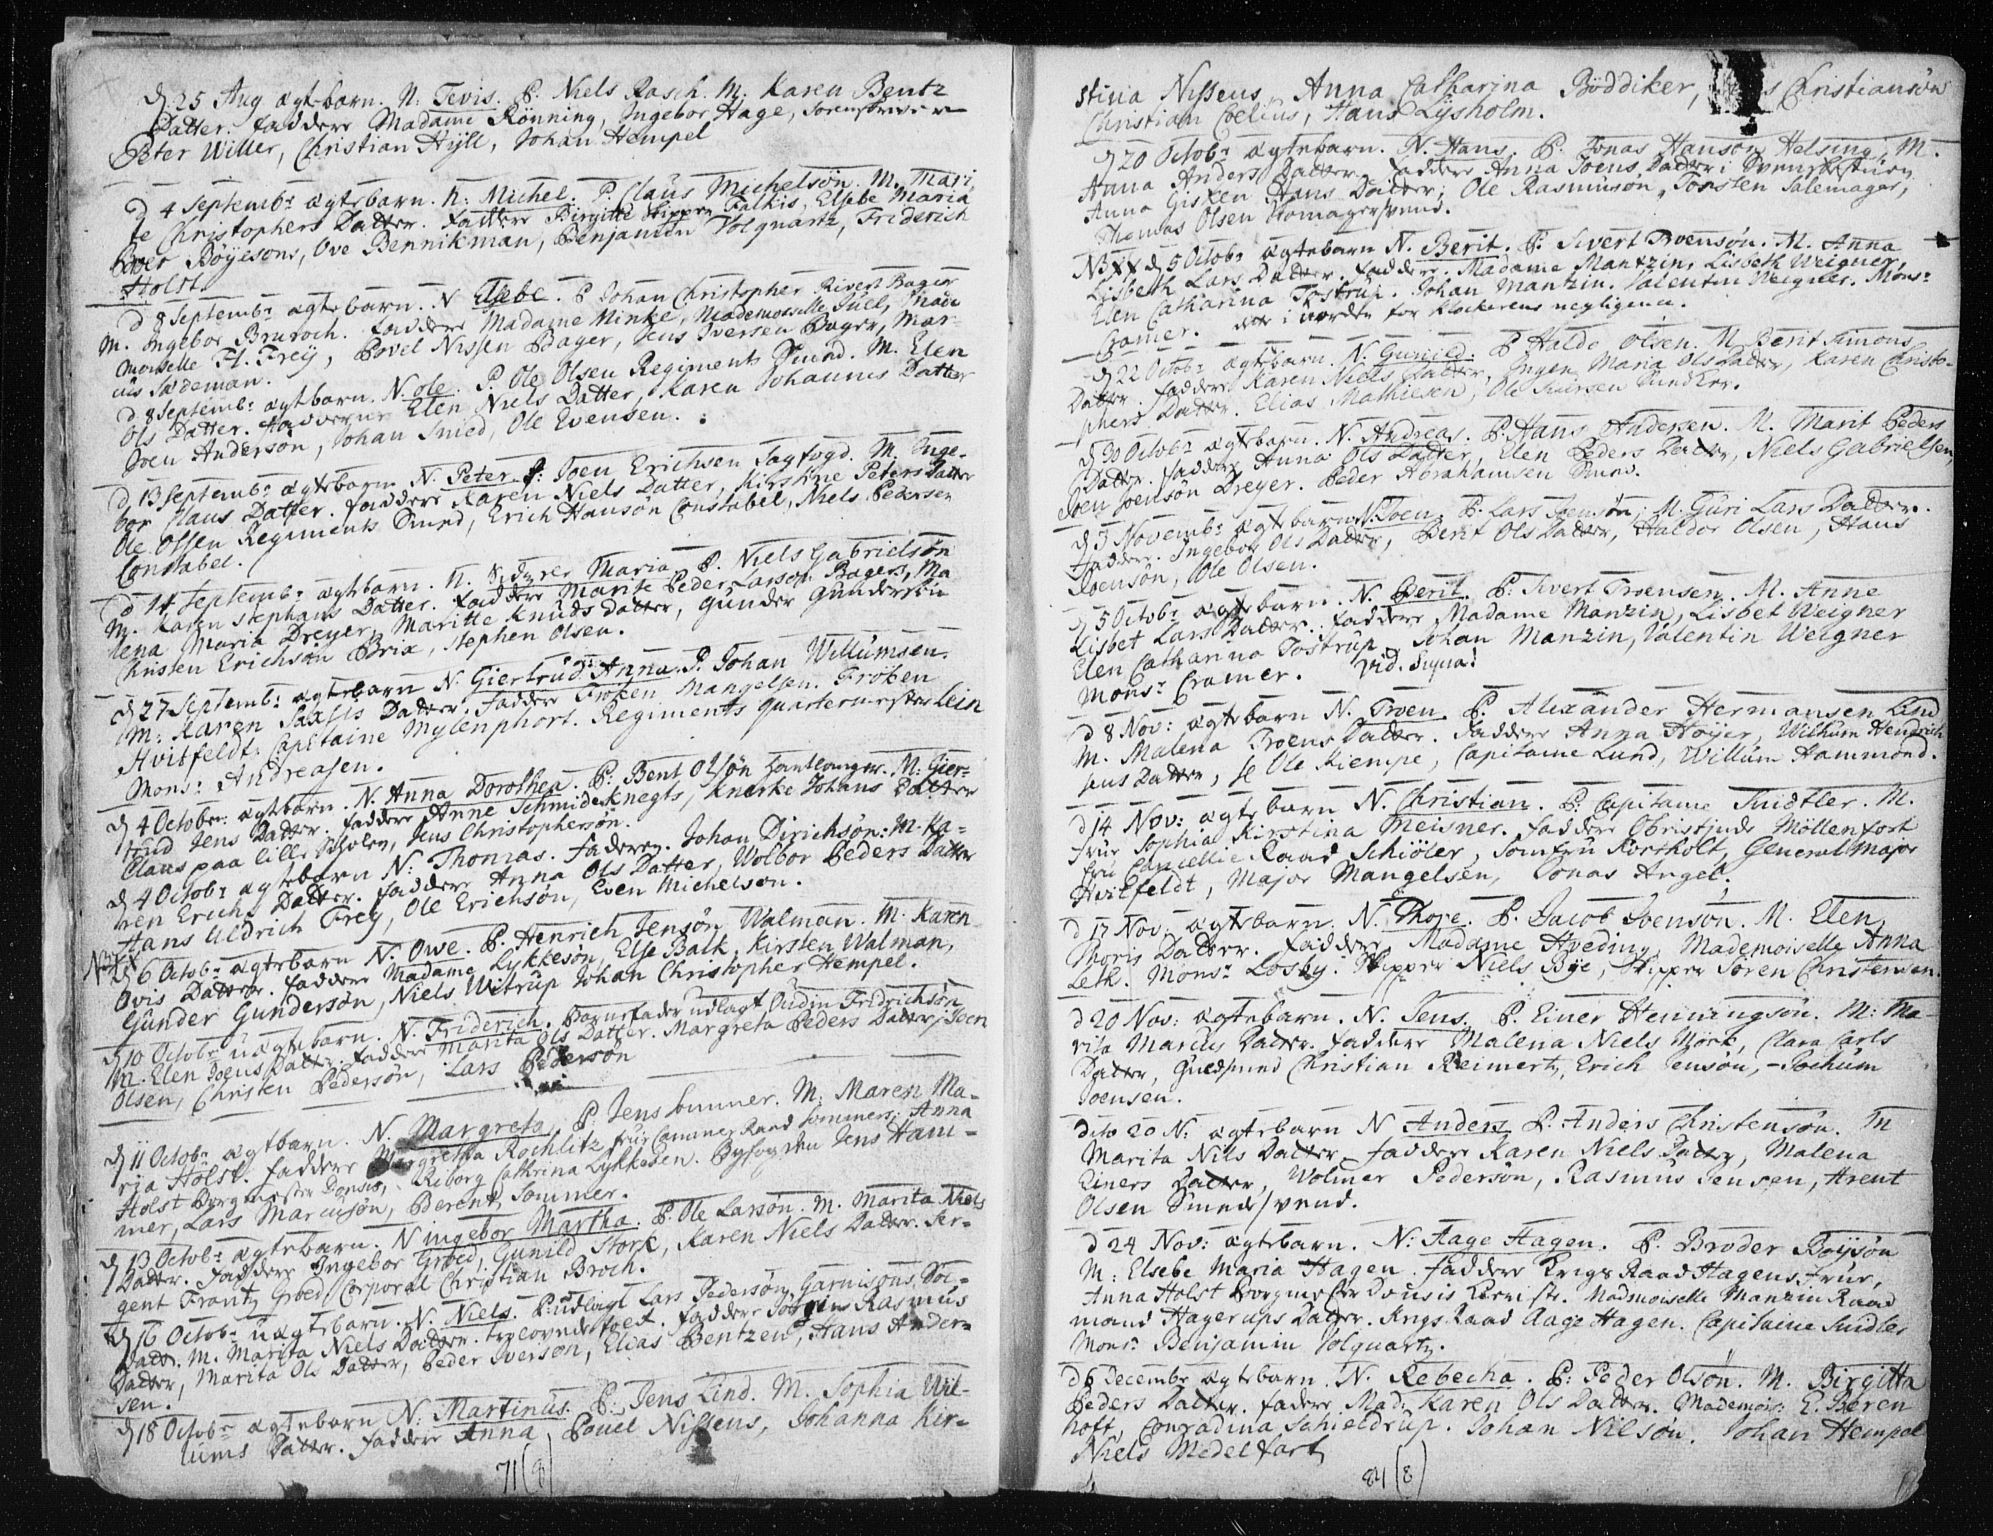 d. 25 Aug ægtebarn. N: Tevis. P. Niels Rasch. M. Karen Bentz
Datter. Faddere Madame Rönning, Ingebor Hage, Sorenskriver
Peter Willer, Christian Hyll, Johan Hempel
d 4 Septembr ægtebarn. N: Michel. P. Claus Michelsön. M. Mari
te Christophers Datter. Faddere Birgitte Skipper Falkis, Elsebe Maria
Broer Böyesons, Ove Bennikman, Benjamin Volquartz, Friderich
Holst.
d 8 Septembr ægtebarn. N Elsebe. P Johan Christopher Rivert Bager
M. Ingebor Bruroch. Faddere Madame Minke, Mademoiselle Juel, Made
moiselle Fl. Frey, Povel Nissen Bager, Jens Iversen Bager, Mar-
cus Sademan.
d 8 Septembr ægtebarn. N. Ole. P. Ole Olsen Regiments Smed. M. Elen
Ols Datter. Fadderne Elen Niels Datter, Karen Johannis Datter
Joen Andersön, Johan Smed, Ole Evensen.
d 13 Septembr ægtebarn N. Peter. P: Joen Erichsen Sagfogd. M. Inge-
bor Claus Datter. Faddere Karen Niels Datter, Kirstine Peters Datter
Ole Olsen Regiments Smed, Erich Hansön Constabel, Niels Pedersen
Constabel.
d 14 Septembr ægtebarn. N. Maria P. Niels Gabrielsön
M. Karen Stephans Datter. Faddere Marite Peder Larsön Bagers, Ma
lena Maria Dreyer, Maritte Knuds Datter, Gunder Gundersön
Christen Erichsön Brix, Stephen Olsen.
d 27 Septembr: ægtebarn N. Giertrud Anna. P. Johan Willumsen.
M: Karen Saxsis Datter. Faddere Fröken Mangelsen. Fröken
Hvitfeldt. Capitaine Mylenphort. Regiments quartermester Lein
Mons: Andreasen.
d 4 Octobr: ægtebarn. N. Anna Dorothea. P: Bent Olsön Hantlanger. M: Gier-
trud Jens Datter. Faddere Anne Schmideknegts, Johans Datter
Claus paa lille Scholen, Jens Christophersön.
d 4 Octobr ægtebarn N: Thomas. Faderen. Johan Dirichsön: M. Ka-
ren Erichs Datter. Faddere Anna Ols Datter, Wolbor Peders Datter
Hans Uldrich Frey, Ole Erichsön, Even Michelson.
NB XX d 6 Octobr ægtebarn N. Owe. P. Henrich Jensön Walman. M. Karen
Ovis Datter. Faddere Madame Lykkesön, Else Balk, Kirsten Walman,
Gunder Gundersön, Niels Witrup Johan Christopher Hempel.
d 10 Octobr uægtebarn. N. Friderich. Barnefader udlagt Oudin Fridrichsön
M. Elen Joens Datter. Faddere Marita Ols Datter. Margreta Peders Datter, Joen
Olsen, Christen Pedersön, Lars Pedersön
d 11 Octobr ægtbarn. N. Margreta P. Jens Sommer. M: Maren Ma-
ria Holst. Faddere Margretha Rochlitz, frue Cammer Raad Sommers, Anna
Holst Borgmester Donsis, Riborg Cathrina Lykkesen. Byfogden Jens Ham-
mer, Lars Marcusön, Berent Sommer.
d 13 Octobr ægtebarn. N Ingebor Martha. P. Ole Larsön. M. Marita Niels
Datter. Faddere Ingebor Groed, Gunild Stork, Karen Niels Datter. Ser-
gent Frantz Groed Corporal Christian Broch.
d 16 Octobr uægtebarn. N. Niels. P: udlagt Lars Pedersön Garnisons Sol-
dat. M. Marita Niels Datter. trolovede folk. Faddere Rasmus
Datter, Marita Ols Datter, Peder Iversön, Elias Bentzen, Hans Ander-
sen.
d 18 Octobr ægtebarn N: Martinus. P. Jens Lind. M. Sophia Wil-
lums Datter. Faddere Anna Pouel Nissens, Johanna Kir-
71 (8)
stina Nissens, Anna Catharina Böddiker, Christiansön
Christian Coelius, Hans Lysholm.
d 20 Octobr ægtebarn. N. Hans. P. Jonas Hansön Helsing, M.
Anna Anders Datter. Faddere Anna Joens Datter i
Anna Gisken Hans Datter, Ole Rasmuson, Torsten Salemager,
Thomas Olsen svend.
NB XX d 5 Octobr ægtebarn N. Berit. P: Sivert Troensön. M. Anna
Lisbeth Lars Datter. Faddere. Madame Mantzin, Lisbeth Weigner,
Elen Catharina Tostrup. Johan Mantzin. Valentin Weigner. Monsr
Cramer. for klockerens negligence.
d 22 Octobr ægtebarn. N: Gunild. P Haldo Olsen. M Berit Simons
Datter. Faddere Karen Niels Datter, Ingen Maria Ols Datter, Karen Christo-
phers Datter. Elias Mathiesen, Ole Iversen
d 30 Octobr ægtebarn. N. Andreas. P: Hans Andersen. M. Marit Peders
Datter. Faddere Anna Ols Datter, Elen Peders Datter, Niels Gabrielsen,
Joen Joensön Dreyer. Peder Abrahamsen Smed.
d 3 Novembr ægtebarn N. Joen. P. Lars Joensön, M. Guri Lars Datter.
Faddere. Ingebor Ols Datter, Berit Ols Datter, Haldor Olsen, Hans
Joensön, Ole Olsen.
d 5 Octobr ægtebarn. N. Berit. P: Sivert Troensen. M. Anne
Lisbet Lars Datter. Faddere Madame Manzin, Lisbet Weigner
Elen Catharina Tostrup, Johan Manzin, Valentin Weigner
Monsr Cramer. Vid. Supra!
d 8 Nov: ægtebarn N. Troen. P: Alexander Hermansen Lund
M. Malena Troens Datter. Faddere Anna Höyer, Wilhum Hendrich
sens Datter, Ole Kiempe, Capitaine Lund, Willum Hammond.
d 14 Nov: ægtebarn N. Christian. P. Capitaine Smidtler. M.
Frue Sophia Kirstina Meisner. Faddere Obristinde Möllenfort
Fru Cancellie Raad Schiöler, Jomfru Korsholt, General Major
Hvitfeldt, Major Mangelsen, Jonas Angel.
d 17 Nov. ægtebarn N. Thore. P. Jacob Joensön. M. Elen
Thoris Datter. Faddere. Madame Hveding, Mademoiselle Anna
Letk. Monsr Losby. Skipper Niels Bye, Skipper Sören Christensen.
d 20 Nov: ægtebarn. N. Jens. P. Einer Henningsön. M: Ma-
rita Marcus Datter. Faddere Malena Niels Mörk, Clara Carls
Datter, Guldsmed Christian Reimert, Erich Jensön, Jochum
Joensen.
dito 20 N: ægtebarn N Anders P. Anders Christensön. M
Marita Nils Datter Faddere Karen Niels Datter, Malena
Einers Datter, Wolmer Pedersön, Rasmus Jensen, Arent
Olsen Smedesvend.
d 24 Nov: ægtebarn. N: Aage Hagen. P. Broder Boysön
M: Elsebe Maria Hagen. Faddere Krigs Raad Hagens Frue,
Anna Holst Borgmester Donsis Kierristr. Madmoiselle Manzin Raad
mand Hagerups Datter. Krigs Raad Aage Hagen. Capitaine Smidler
Monsr Benjamin Volquartz.
d 6 Decembr ægtebarn. N. Rebecha. P: Peder Olsön. M. Birgitta
Peders Datter. Faddere Mad. Karen Ols Datter. Mademois: E. Beren
hoft, Conradina Schieldrup. Johan Nilsön. Johan Hempel
Niels Medelfart
84 (8)